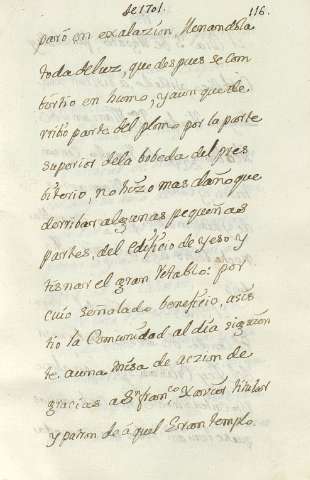 de 1701. 116.
paró en exalazion, llenandola
toda de luz, que despues se com
bírtio en humo, y aun que de
rribó parte del plomo por la parte
superior dela bobeda del pres
biterio, no hizo mas daño que
derribar algunas pequeñas
partes, del edificio de yeso y
tisnar el gran Retablo: por
cuio señalado beneficio, asis
tio la Comunidad al día siguien
te. auna Misa de aczion de
gracias a Sn. Franco. Xavier titular
y patron de áquel Gran templo.